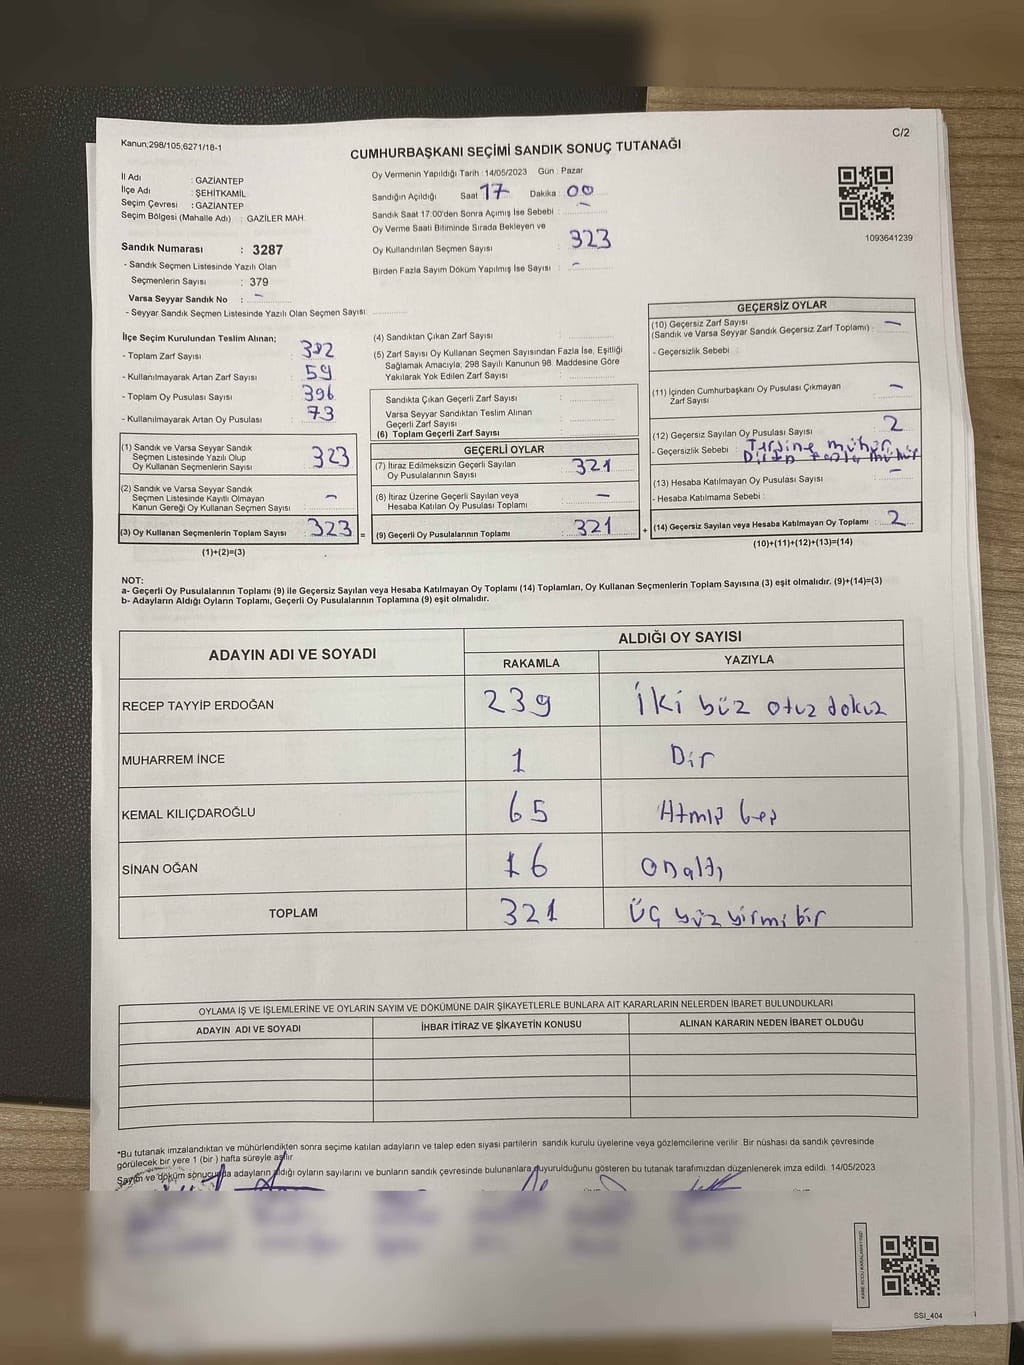 Kanun;298/105;6271/18-1
C/2
CUMHURBAŞKANI SEÇİMİ SANDIK SONUÇ TUTANAĞI
İl Adı : GAZİANTEP
İlçe Adı : ŞEHİTKAMİL
Seçim Çevresi : GAZİANTEP
Seçim Bölgesi (Mahalle Adı) : GAZİLER MAH.
Sandık Numarası : 3287
- Sandık Seçmen Listesinde Yazılı Olan
Seçmenlerin Sayısı : 379
Varsa Seyyar Sandık No : -
- Seyyar Sandık Seçmen Listesinde Yazılı Olan Seçmen Sayısı
Oy Vermenin Yapıldığı Tarih : 14/05/2023 Gün : Pazar
Sandığın Açıldığı Saat 17 Dakika : 00
Sandık Saat 17:00'den Sonra Açımış İse Sebebi : -
Oy Verme Saati Bitiminde Sırada Bekleyen ve
Oy Kullandırılan Seçmen Sayısı : 323
Birden Fazla Sayım Döküm Yapılmış İse Sayısı : -
1093641239
İlçe Seçim Kurulundan Teslim Alınan;
- Toplam Zarf Sayısı : 382
- Kullanılmayarak Artan Zarf Sayısı : 59
- Toplam Oy Pusulası Sayısı : 396
- Kullanılmayarak Artan Oy Pusulası : 73
(1) Sandık ve Varsa Seyyar Sandık
Seçmen Listesinde Yazılı Olup
Oy Kullanan Seçmenlerin Sayısı : 323
(2) Sandık ve Varsa Seyyar Sandık
Seçmen Listesinde Kayıtlı Olmayan
Kanun Gereği Oy Kullanan Seçmen Sayısı : -
(3) Oy Kullanan Seçmenlerin Toplam Sayısı : 323 =
(1)+(2)=(3)
(4) Sandıktan Çıkan Zarf Sayısı :
(5) Zarf Sayısı Oy Kullanan Seçmen Sayısından Fazla İse, Eşitliği
Sağlamak Amacıyla; 298 Sayılı Kanunun 98. Maddesine Göre
Yakılarak Yok Edilen Zarf Sayısı :
Sandıkta Çıkan Geçerli Zarf Sayısı :
Varsa Seyyar Sandıktan Teslim Alınan
Geçerli Zarf Sayısı :
(6) Toplam Geçerli Zarf Sayısı
GEÇERLİ OYLAR
(7) İtiraz Edilmeksizin Geçerli Sayılan
Oy Pusulasının Sayısı : 321
(8) İtiraz Üzerine Geçerli Sayılan veya
Hesaba Katılan Oy Pusulası Toplamı : -
(9) Geçerli Oy Pusulalarının Toplamı : 321 +
GEÇERSİZ OYLAR
(10) Geçersiz Zarf Sayısı
(Sandık ve Varsa Seyyar Sandık Geçersiz Zarf Toplamı) : -
- Geçersizlik Sebebi :
(11) İçinden Cumhurbaşkanı Oy Pusulası Çıkmayan
Zarf Sayısı : -
(12) Geçersiz Sayılan Oy Pusulası Sayısı : 2
- Geçersizlik Sebebi : Tersine mühür
Birden fazla mühür
(13) Hesaba Katılmayan Oy Pusulası Sayısı : -
- Hesaba Katılmama Sebebi :
(14) Geçersiz Sayılan veya Hesaba Katılmayan Oy Toplamı : 2
(10)+(11)+(12)+(13)=(14)
NOT:
a- Geçerli Oy Pusulalarının Toplamı (9) ile Geçersiz Sayılan veya Hesaba Katılmayan Oy Toplamı (14) Toplamları, Oy Kullanan Seçmenlerin Toplam Sayısına (3) eşit olmalıdır. (9)+(14)=(3)
b- Adayların Aldığı Oyların Toplamı, Geçerli Oy Pusulalarının Toplamına (9) eşit olmalıdır.
ADAYIN ADI VE SOYADI
ALDIĞI OY SAYISI
RAKAMLA YAZIYLA
RECEP TAYYİP ERDOĞAN 239 İki yüz otuz dokuz
MUHARREM İNCE 1 Bir
KEMAL KILIÇDAROĞLU 65 Atmış beş
SİNAN OĞAN 16 onaltı
TOPLAM 321 Üç yüz yirmi bir
OYLAMA İŞ VE İŞLEMLERİNE VE OYLARIN SAYIM VE DÖKÜMÜNE DAİR ŞİKAYETLERLE BUNLARA AİT KARARLARIN NELERDEN İBARET BULUNDUKLARI
ADAYIN ADI VE SOYADI İHBAR İTİRAZ VE ŞİKAYETİN KONUSU ALINAN KARARIN NEDEN İBARET OLDUĞU
*Bu tutanak imzalandıktan ve mühürlendikten sonra seçime katılan adayların ve talep eden siyasi partilerin sandık kurulu üyelerine veya gözlemcilerine verilir. Bir nüshası da sandık çevresinde
görülecek bir yere 1 (bir) hafta süreyle asılır.
Sayım ve döküm sonucunda adayların aldığı oyların sayılarını ve bunların sandık çevresinde bulunanlara duyurulduğunu gösteren bu tutanak tarafımızdan düzenlenerek imza edildi. 14/05/2023
SSI_404